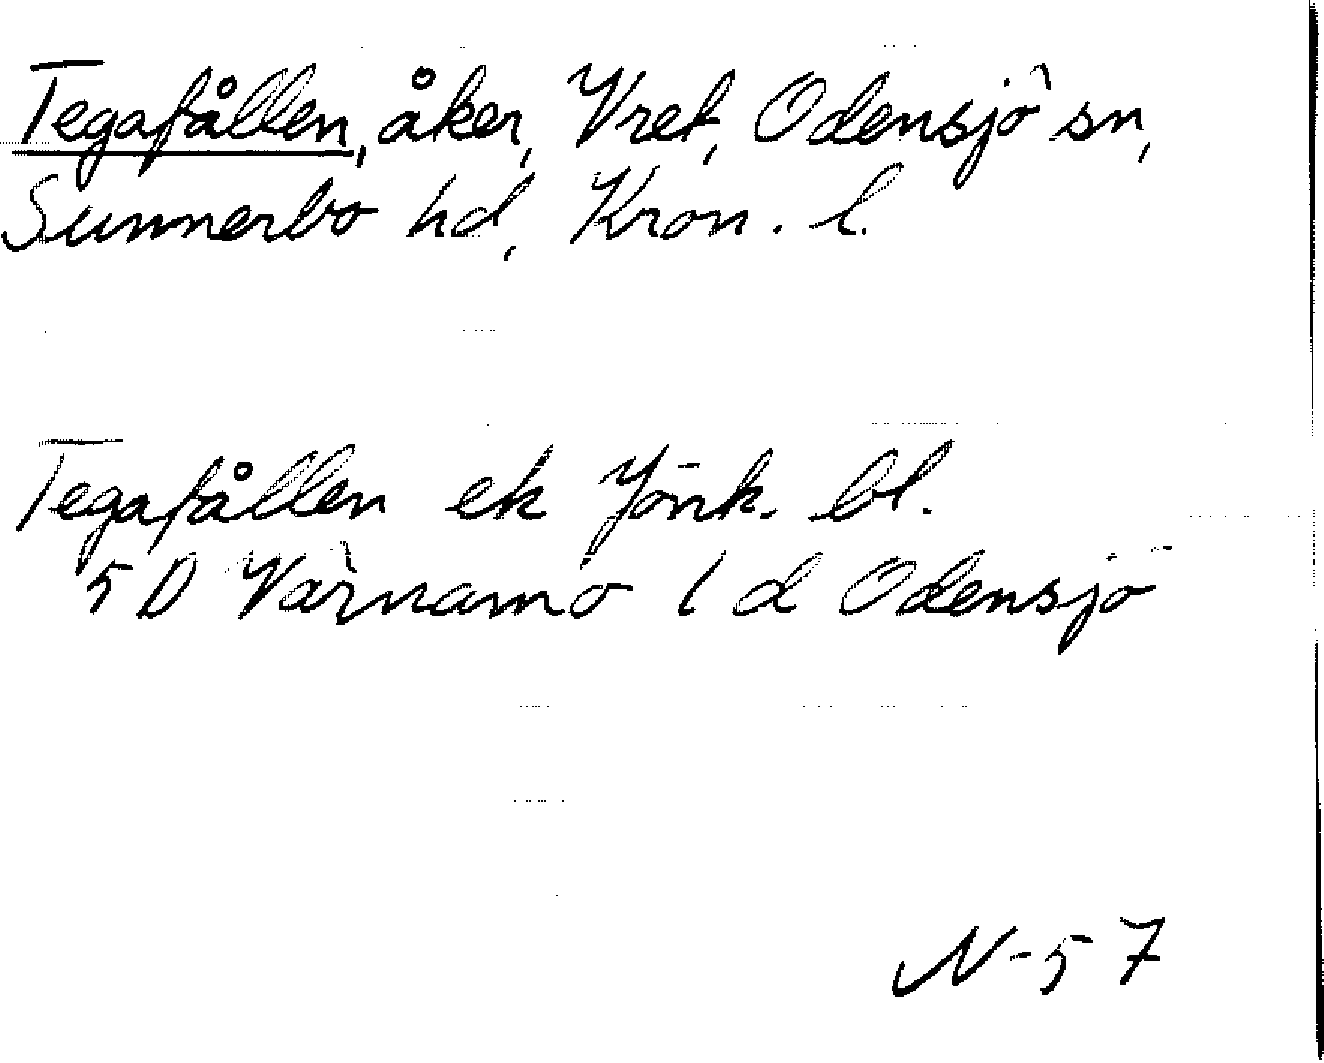 Tegafållen, åker, Vret, Odensjö sn,
Sunnerbo hd, Kron. l.
Tegafållen ek Jönk. bl.
5D Värnamo 1d Odensjö
N-57